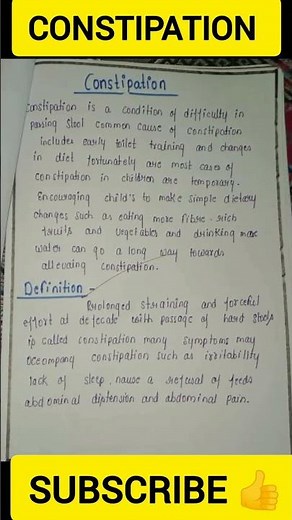 CONSTIPATION
Constipation
Constipation is a condition of difficulty in
passing stool common cause of constipation
includes early toilet training and changes
in diet fortunately are most cases of
constipation in children are temporary.
Encouraging child's to make simple dietary
changes such as eating more fibre-rich
fruits and vegetables and drinking more
water can go a long way towards
alleviating constipation.
Definition -
Prolonged straining and forceful
effort at defecate with passage of hard stools
is called constipation many symptoms may
accompany constipation such as irritability
lack of sleep, nause a refusal of feeds
abdominal distension and abdominal pain.
SUBSCRIBE 👍